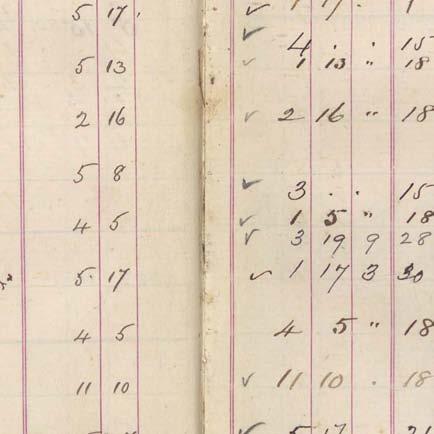 5 17
5 13
2 16
5 8
4 5
5 17
4 5
11 10
✓ 1 17 .
✓ 4 . . 15
✓ 1 13 " 18
✓ 2 16 " 18
✓ 3 . . 15
✓ 1 5 " 18
✓ 3 19 9 28
✓ 1 17 3 30
4 5 " 18
✓ 11 10 . 18